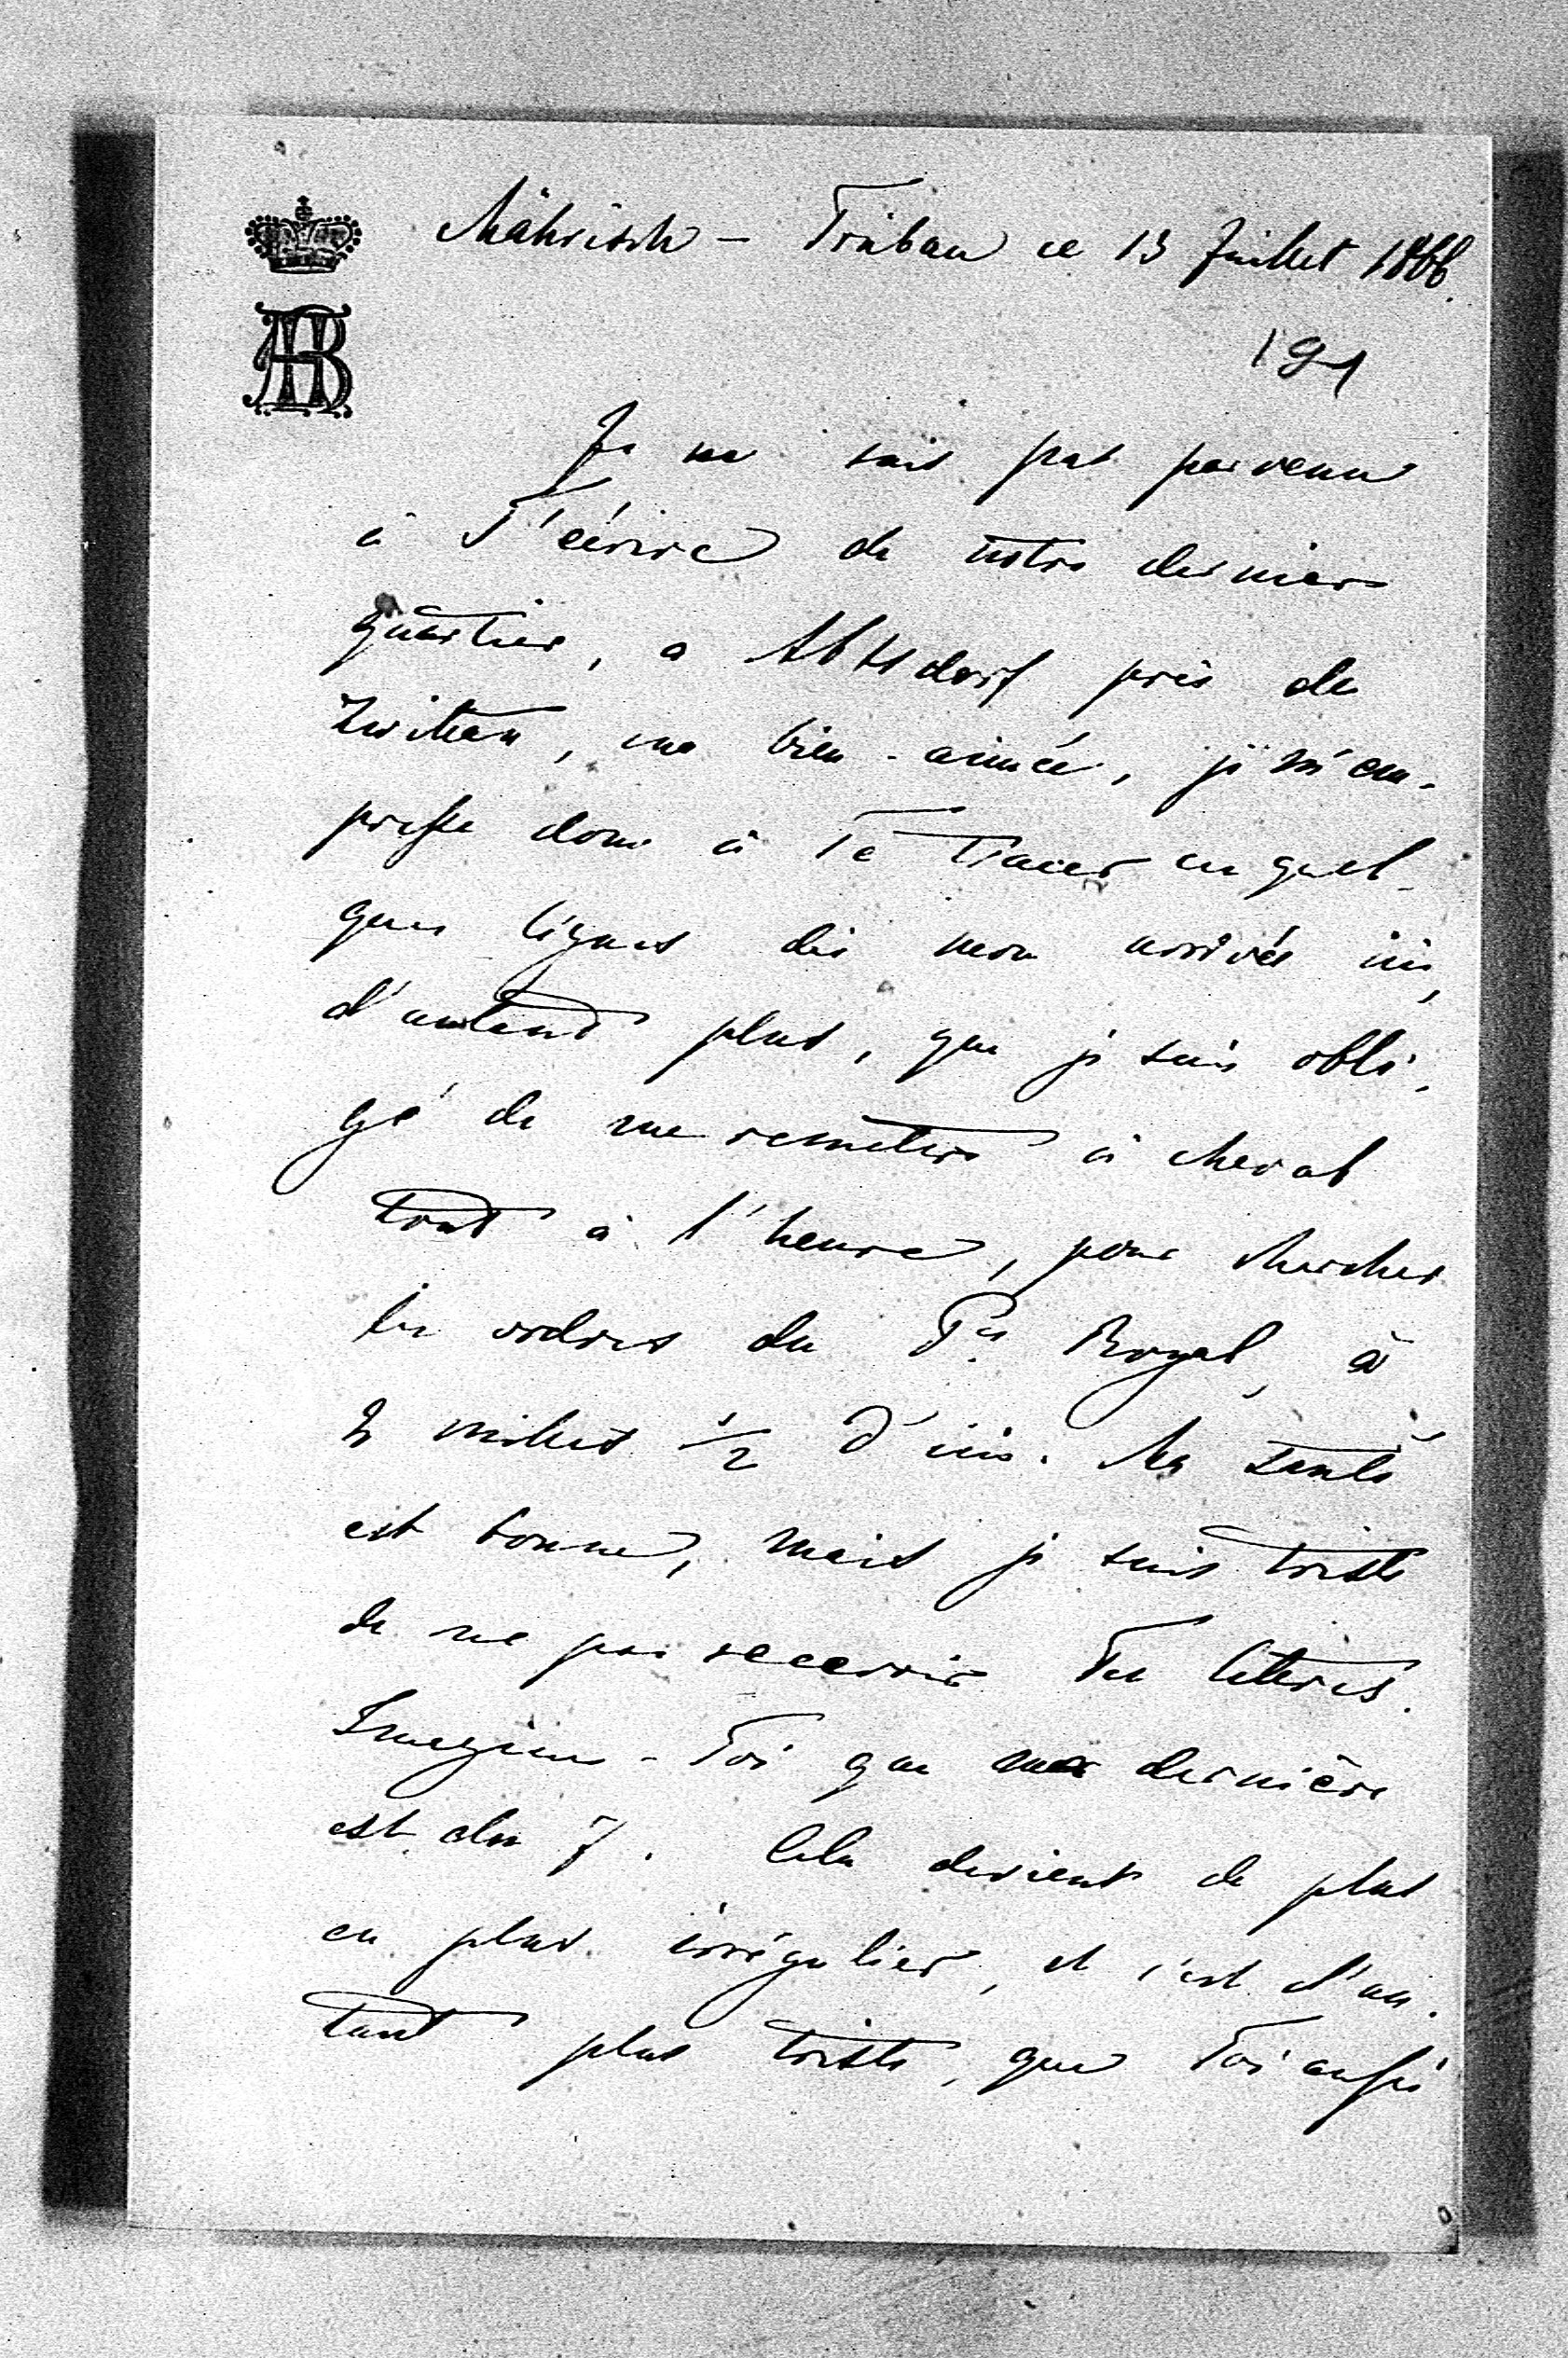 Mährisch - Trübau ce 13 Juillet 1866.
191
Je ne suis pas parvenu
à T'écrire de notre dernier
quartier, a Abtsdorf près de
Zwittau, ma bien-aimée, je m'em-
presse donc à Te tracer ces quel-
ques lignes dès mon arrivée ici,
d'autant plus, que je suis obli-
gé de me remettre à cheval
tout à l'heure, pour chercher
les ordres du Pce Royal, à
milles 1/2 d'ici. Ma santé
est bonne, mais je suis triste
de ne pas recevoir Tes lettres.
Imagine-Toi que ma dernière
est du 7. Cela devient de plus
en plus irrégulier, et c'est d'au-
tant plus triste, que Toi aussi